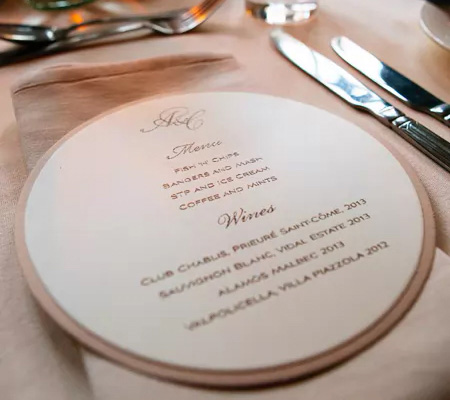 A&C
Menu
FISH 'N' CHIPS
BANGERS AND MASH
STP AND ICE CREAM
COFFEE AND MINTS
Wines
CLUB CHABLIS, PRIEURÉ SAINT-CÔME, 2013
SAUVIGNON BLANC, VIDAL ESTATE 2013
ALAMOS MALBEC 2013
VALPOLICELLA, VILLA PIAZZOLA 2012